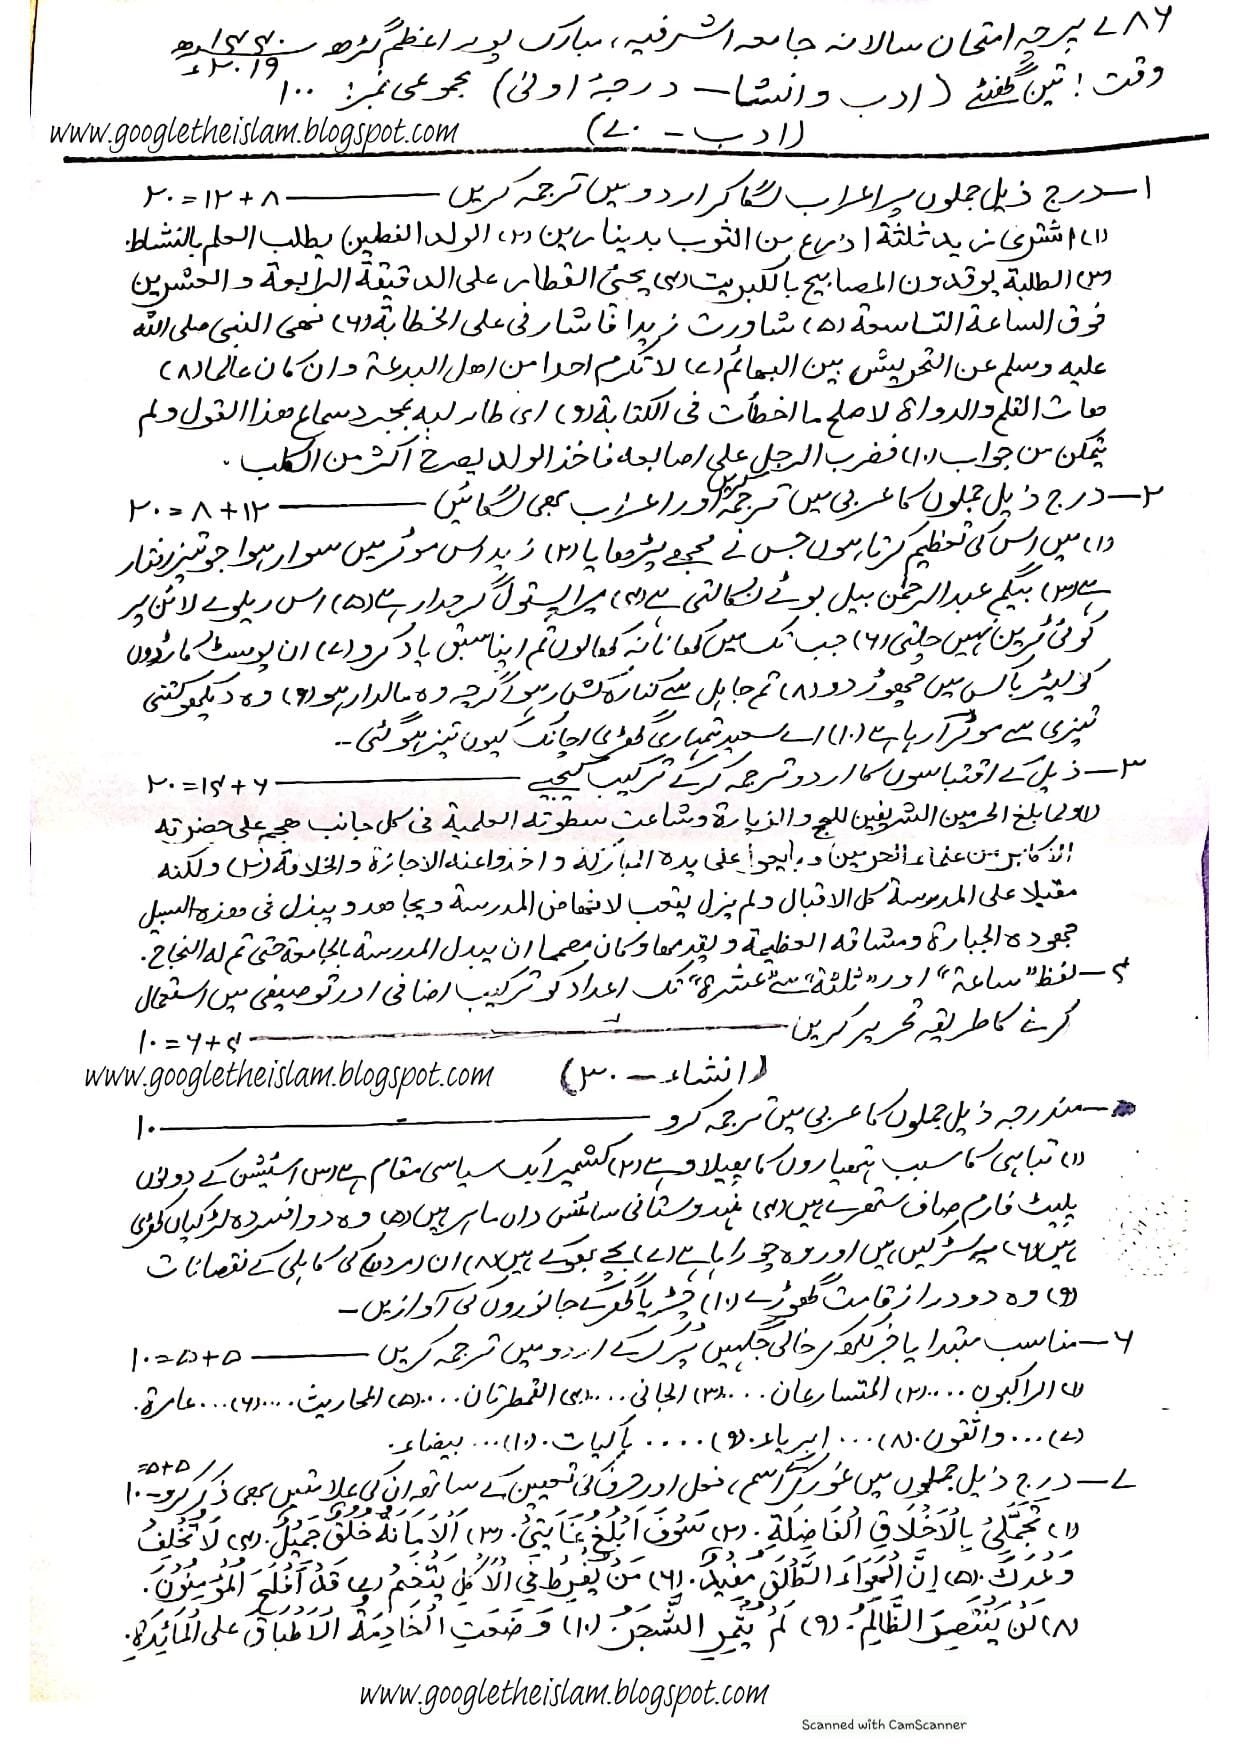 ۷۸۶ پرچہ امتحان سالانہ جامعہ اشرفیہ، مبارک پور اعظم گڑھ ۱۴۴۰ھ / ۲۰۱۹ء
وقت: تین گھنٹے (ادب وانشا – درجۂ اولیٰ) مجموعی نمبر: ۱۰۰
www.googletheislam.blogspot.com (ادب – ۷۰)
۱– درج ذیل جملوں پر اعراب لگا کر اردو میں ترجمہ کریں ۸+۱۲=۲۰
(۱) اشتری زید ثلثة اذرع من الثوب بدینارین (۲) الولد الفطین یطلب العلم بالنشاط
(۳) الطلبة یوقدون المصابیح بالکبریت (۴) یجئ القطار علی الدقیقة الرابعة والعشرین
فوق الساعة التاسعة (۵) شاورت زیدا فاشار نی علی الخطابة (۶) نھی النبی صلی اللہ
علیہ وسلم عن التحریش بین البھائم (۷) لا تکرم احدا من اھل البدعة وان کان عالما (۸)
ھات القلم والدواة لاصلح ما اخطأت فی الکتابة (۹) ای طار لبه بمجرد سماع ھذا القول ولم
یتمکن من جواب (۱۰) فضرب الرجل علی اصابعه فاخذ الولد یصرخ اکثر من الکلب.
۲– درج ذیل جملوں کا عربی میں ترجمہ کریں اور اعراب بھی لگائیں ۱۲+۸=۲۰
(۱) میں اس کی تعظیم کرتا ہوں جس نے مجھے پڑھایا (۲) زید اس موٹر میں سوار ہوا جو تیز رفتار
ہے (۳) بیگم عبدالرحمٰن بیل بوٹے نکالتی ہے (۴) میرا پستول گرجدار ہے (۵) اس ریلوے لائن پر
کوئی ٹرین نہیں چلتی (۶) جب تک میں کھانا نہ کھالوں تم اپنا سبق یاد کرو (۷) ان پوسٹ کارڈوں
کو لیٹر باکس میں چھوڑ دو (۸) تم جاہل سے کنارہ کش رہو اگرچہ وہ مالدار ہو (۹) وہ دیکھو کتنی
تیزی سے موٹر آرہا ہے (۱۰) اے سعید تمہاری گھڑی اچانک کیوں تیز ہوگئی۔۔
۳– ذیل کے اقتباسوں کا اردو ترجمہ کرکے ترکیب کیجیے ۶+۱۴=۲۰
(۱) ولما بلغ الحرمین الشریفین للحج والزیارة وشاعت سطوته العلمیة فی کل جانب ھجم علی حضرته
الاکابر من علماء الحرمین وبایعوا علی یده المبارکة واخذوا عنه الاجازة والخلافة (۲) ولکنه
مقبلا علی المدرسة کل الاقبال ولم یزل یتعب لانھاض المدرسة ویجاھد ویبذل فی ھذه السبیل
جھوده الجبارة ومشاقه العظیمة ویقدمھا وکان مصمما ان یبدل المدرسة بالجامعة حتی تم له النجاح.
۴– لفظ "ساعة" اور "ثلثة" سے "عشرة" تک اعداد کو ترکیب اضافی اور توصیفی میں استعمال
کرنے کا طریقہ تحریر کریں ۴+۶=۱۰
www.googletheislam.blogspot.com (انشاء – ۳۰)
– مندرجہ ذیل جملوں کا عربی میں ترجمہ کرو ۱۰
(۱) تباہی کا سبب ہتھیاروں کا پھیلاو ہے (۲) کشمیر ایک سیاسی مقام ہے (۳) اسٹیشن کے دونوں
پلیٹ فارم صاف ستھرے ہیں (۴) ہندوستانی سائنس داں ماہر ہیں (۵) وہ دو افسردہ لڑکیاں کھڑی
ہیں (۶) یہ سڑکیں ہیں اور وہ چوراہا ہے (۷) بچے بھوکے ہیں (۸) ان مردوں کی کاہلی کے نقصانات
(۹) وہ دو دراز قامت گھوڑے (۱۰) چڑیا گھر کے جانوروں کی آوازیں –
۶– مناسب مبتدا یا خبر لکھ کر خالی جگہیں پُر کرکے اردو میں ترجمہ کریں ۵+۵=۱۰
(۱) الراکبون .... (۲) المتسارعان .... (۳) الجانی .... (۴) القمطرتان .... (۵) المحاریث .... (۶) ... عامرة.
(۷) ... واثقون. (۸) ... ابریاء. (۹) .... باکیات. (۱۰) ... بیضاء.
۷– درج ذیل جملوں میں غور کرکے اسم، فعل اور حرف کی تعیین کے ساتھ ان کی علامتیں بھی ذکر کرو – ۵+۵=۱۰
(۱) تَجَمَّلِیْ بِالْاَخْلَاقِ الْفَاضِلَةِ. (۲) سَوْفَ اَبْلُغُ غَایَتِیْ. (۳) اَلْاَمَانَةُ خُلُقٌ جَمِیْلٌ. (۴) لَا تُخْلِفْ
وَعْدَكَ. (۵) اِنَّ الْهَوَاءَ الطَّلْقَ مُفِیْدٌ. (۶) مَنْ یُفْرِطْ فِی الْاَكْلِ یَتْخَمْ (۷) قَدْ اَفْلَحَ الْمُؤْمِنُوْنَ.
(۸) لَنْ یَنْتَصِرَ الظَّالِمُ. (۹) لَمْ یُثْمِرِ الشَّجَرُ. (۱۰) وَضَعَتِ الْخَادِمَةُ الْاَطْبَاقَ عَلَی الْمَائِدَةِ.
www.googletheislam.blogspot.com
Scanned with CamScanner